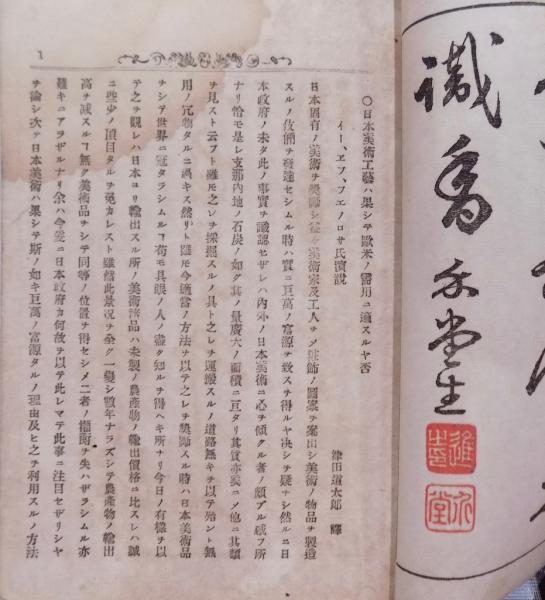 ○日本美術工藝ハ果シテ歐米ノ需用ニ適スルヤ否
イー、エフ、フエノロサ氏演説
津田道太郎 譯
日本固有ノ美術ヲ奬勵シ益々美術家及工人ヲメ粧飾ノ圖案ヲ案出シ美術ノ物品ヲ製造
スルノ伎倆ヲ發達セシムル時ハ實ニ巨萬ノ富源ヲ致スヲ得ルヤ决シテ疑ナシ然ルニ日
本政府ノ未タ此ノ事實ヲ識認セザレハ内外ノ日本美術ニ心ヲ傾クル者ノ頗アル感フ所
ナリ恰モ是レ支那内地ノ石炭ノ如ク其ノ量廣大ノ面積ニ亘リ其質亦美ニメ他ニ其類
ヲ見スト云フト雖モ之レヲ採掘スルノ具ト之レヲ運搬スルノ道路無キヲ以テ殆ント無
用ノ冗物タルニ過キス然リト雖モ今適當ノ方法ヲ以テ之レヲ奬勵スル時ハ日本美術品
ヲシテ世界ニ冠タラシムルヿ苟モ具眼ノ人ノ盡ク知ルヲ得ヘキ所ナリ今日ノ有樣ヲ以
テ之ヲ觀レハ日本ヨリ輸出スル所ノ美術諸品ハ未製ノ農産物ノ輸出價格ニ比スレハ誠
ニ些少ノ項目タルヲ免カレスト雖然此景况ヲ全ク一變シ數年ナラズシテ農産物ノ輸出
高ヲ减スルヿ無ク美術品ヲシテ同等ノ位置ヲ得セシメ二者ノ權衡ヲ失ハザラシムル亦
難キニアラザルナリ余ハ今爰ニ日本政府カ何故ヲ以テ此レマテ此事ニ注目セザリシヤ
ヲ論シ次テ日本美術ハ果シテ斯ノ如キ巨萬ノ富源タルノ理由及ヒ之ヲ利用スルノ方法
1
識